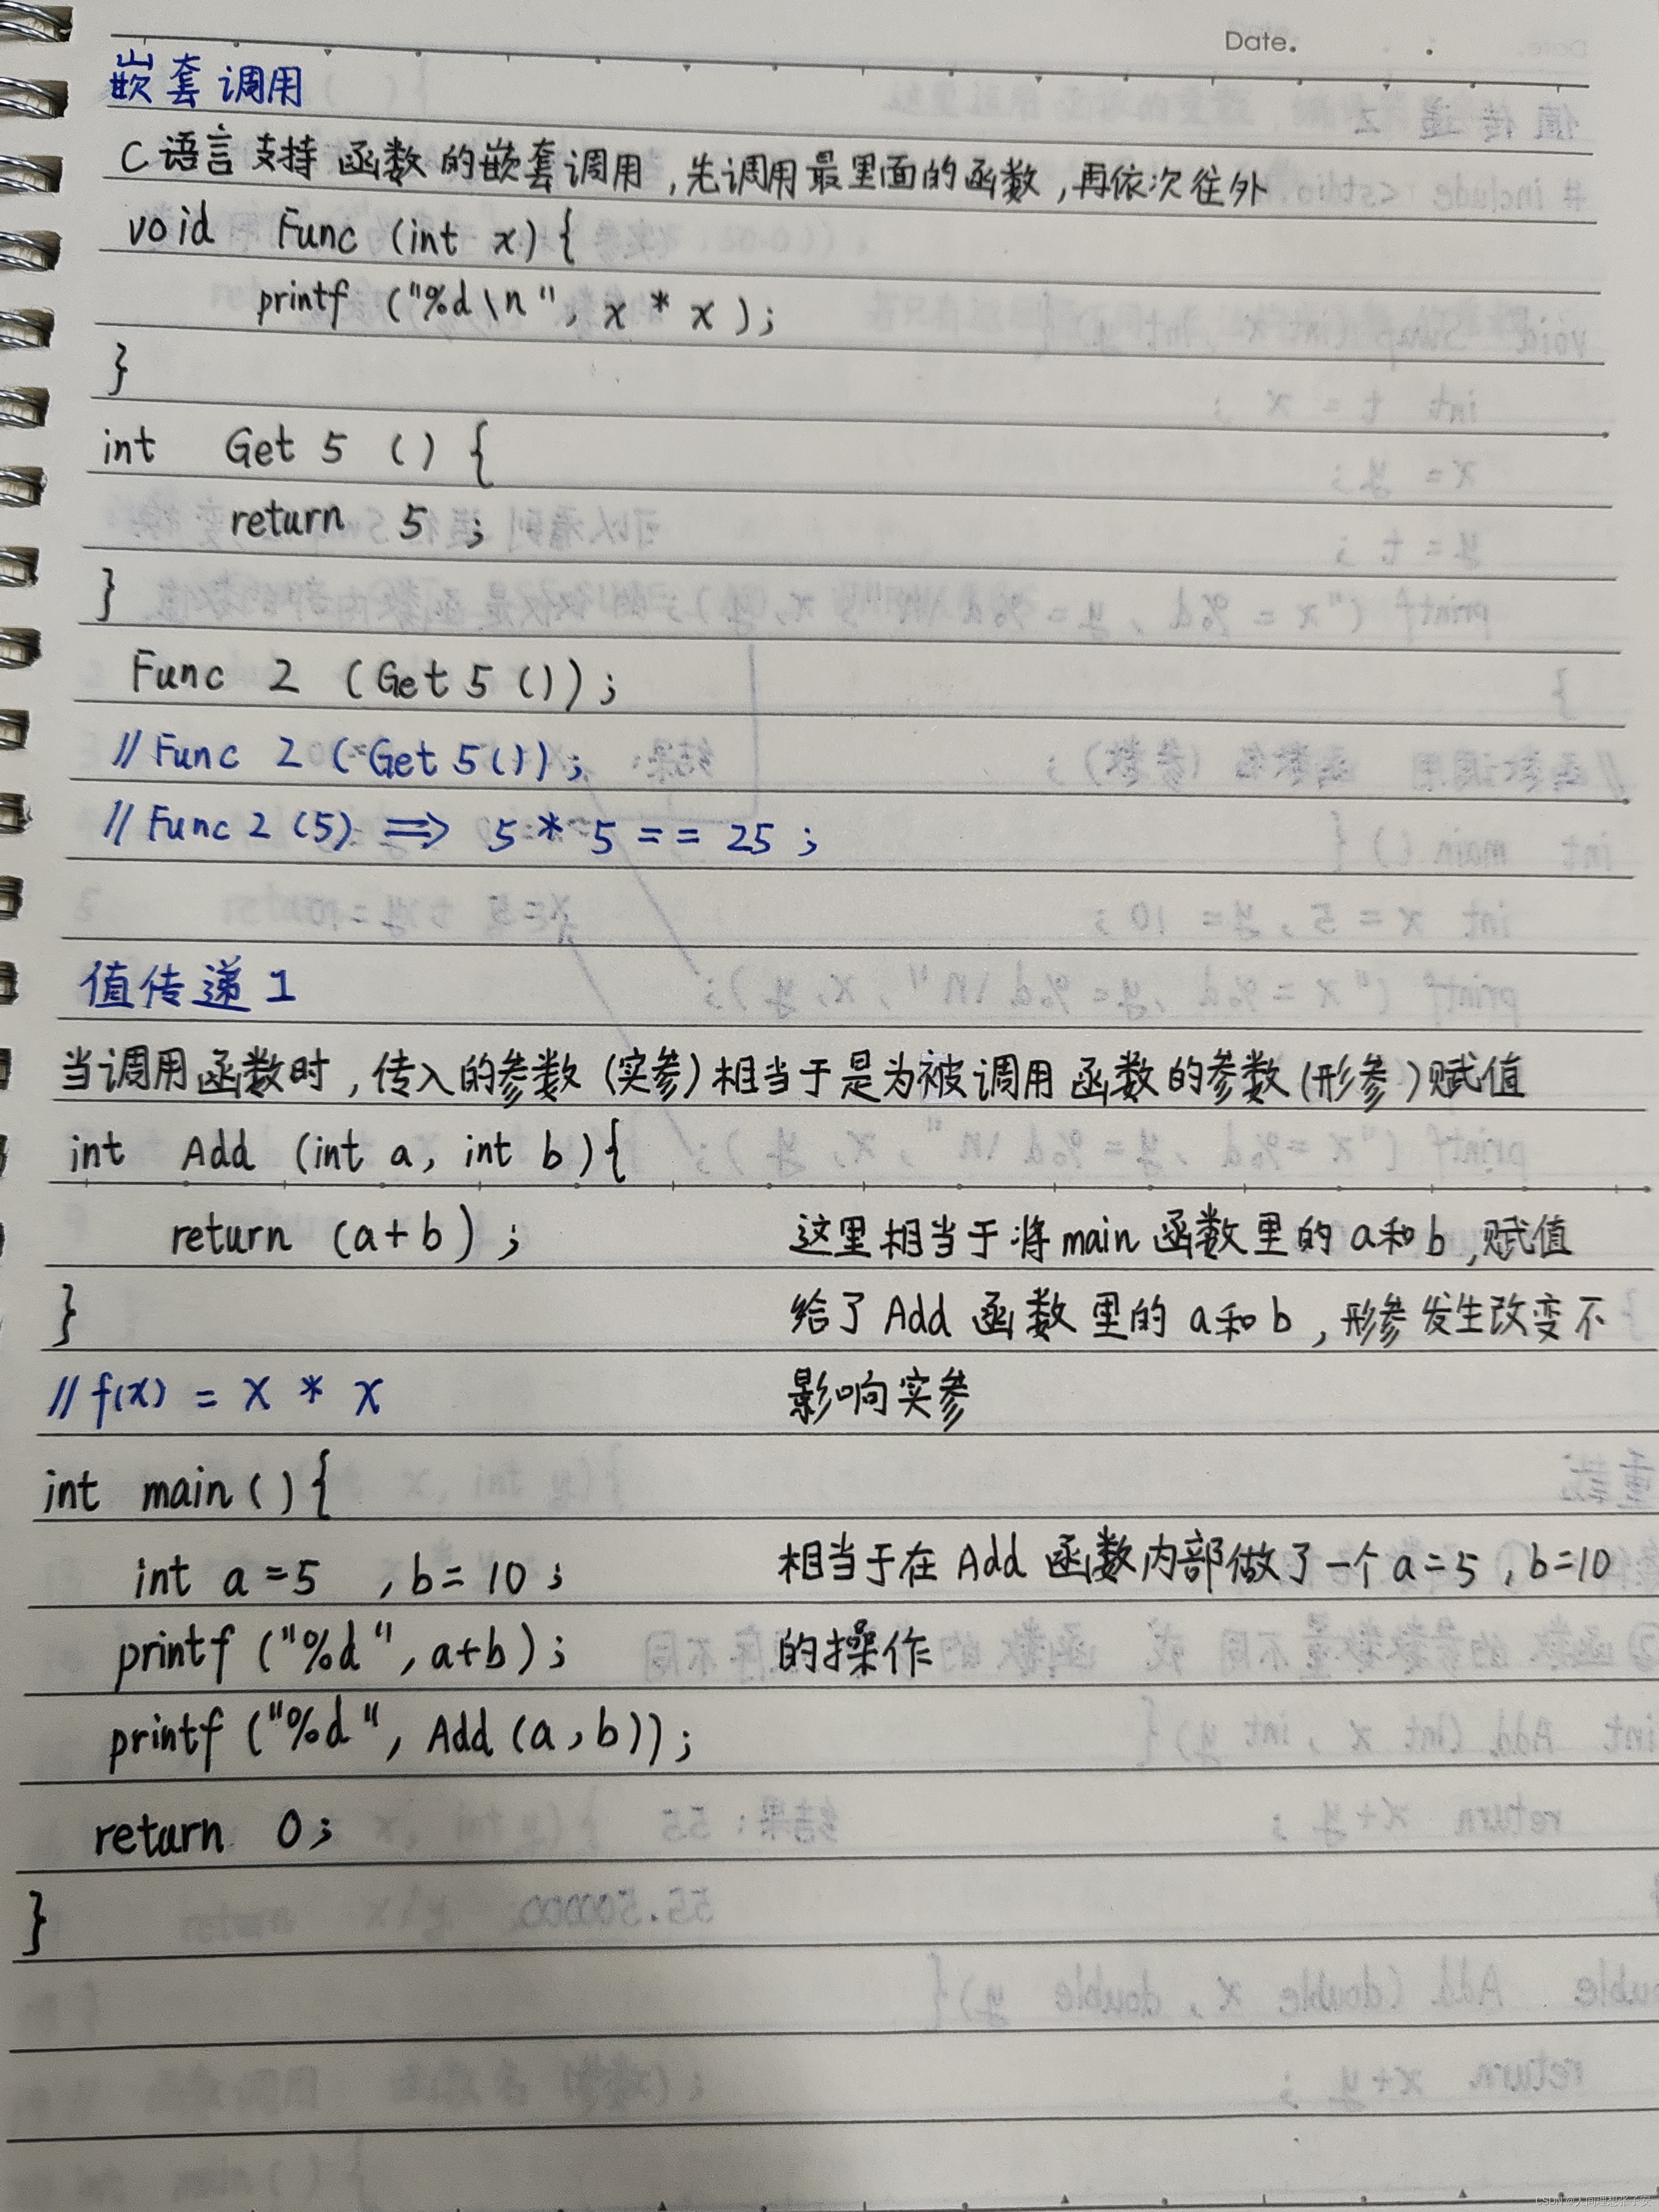 Date.
嵌套调用
C语言支持函数的嵌套调用,先调用最里面的函数,再依次往外
void Func (int x) {
printf ("%d\n", x * x);
}
int Get 5 () {
return 5 ;
}
Func 2 (Get 5 ());
// Func 2 (Get 5());
// Func 2 (5) ⟹ 5 * 5 == 25 ;
值传递 1
当调用函数时,传入的参数(实参)相当于是为被调用函数的参数(形参)赋值
int Add (int a, int b){
return (a+b) ; 这里相当于将main函数里的a和b,赋值
} 给了Add函数里的a和b,形参发生改变不
// f(x) = x * x 影响实参
int main () {
int a=5 , b=10 ; 相当于在Add函数内部做了一个a=5,b=10
printf ("%d", a+b); 的操作
printf ("%d", Add (a,b));
return 0;
}